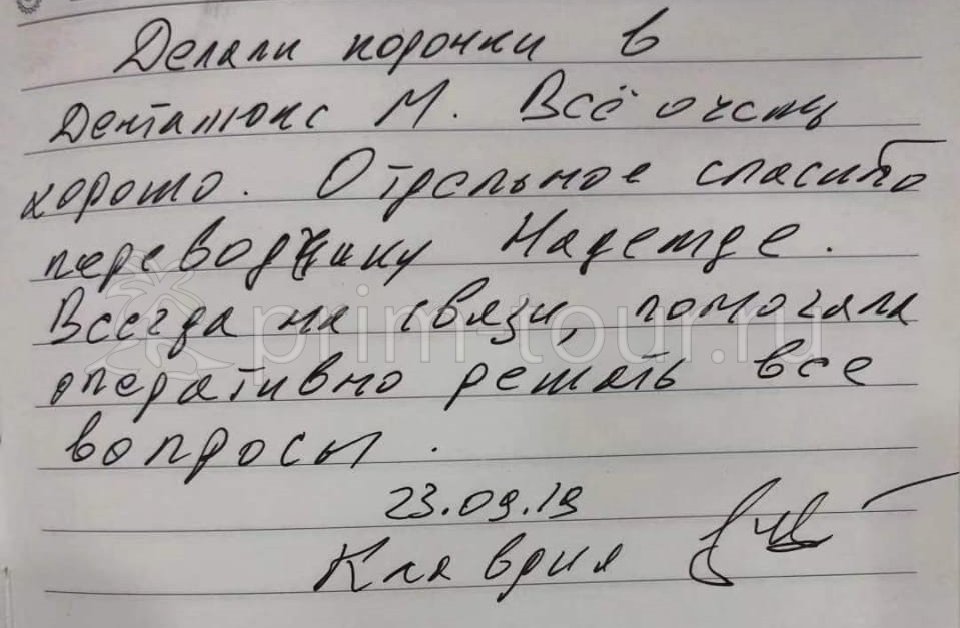 Делали коронки в
Денталюкс М. Всё очень
хорошо. Отдельное спасибо
переводчику Надежде.
Всегда на связи, помогала
оперативно решать все
вопросы.
23.09.19
Клавдия
prim-tour.ru